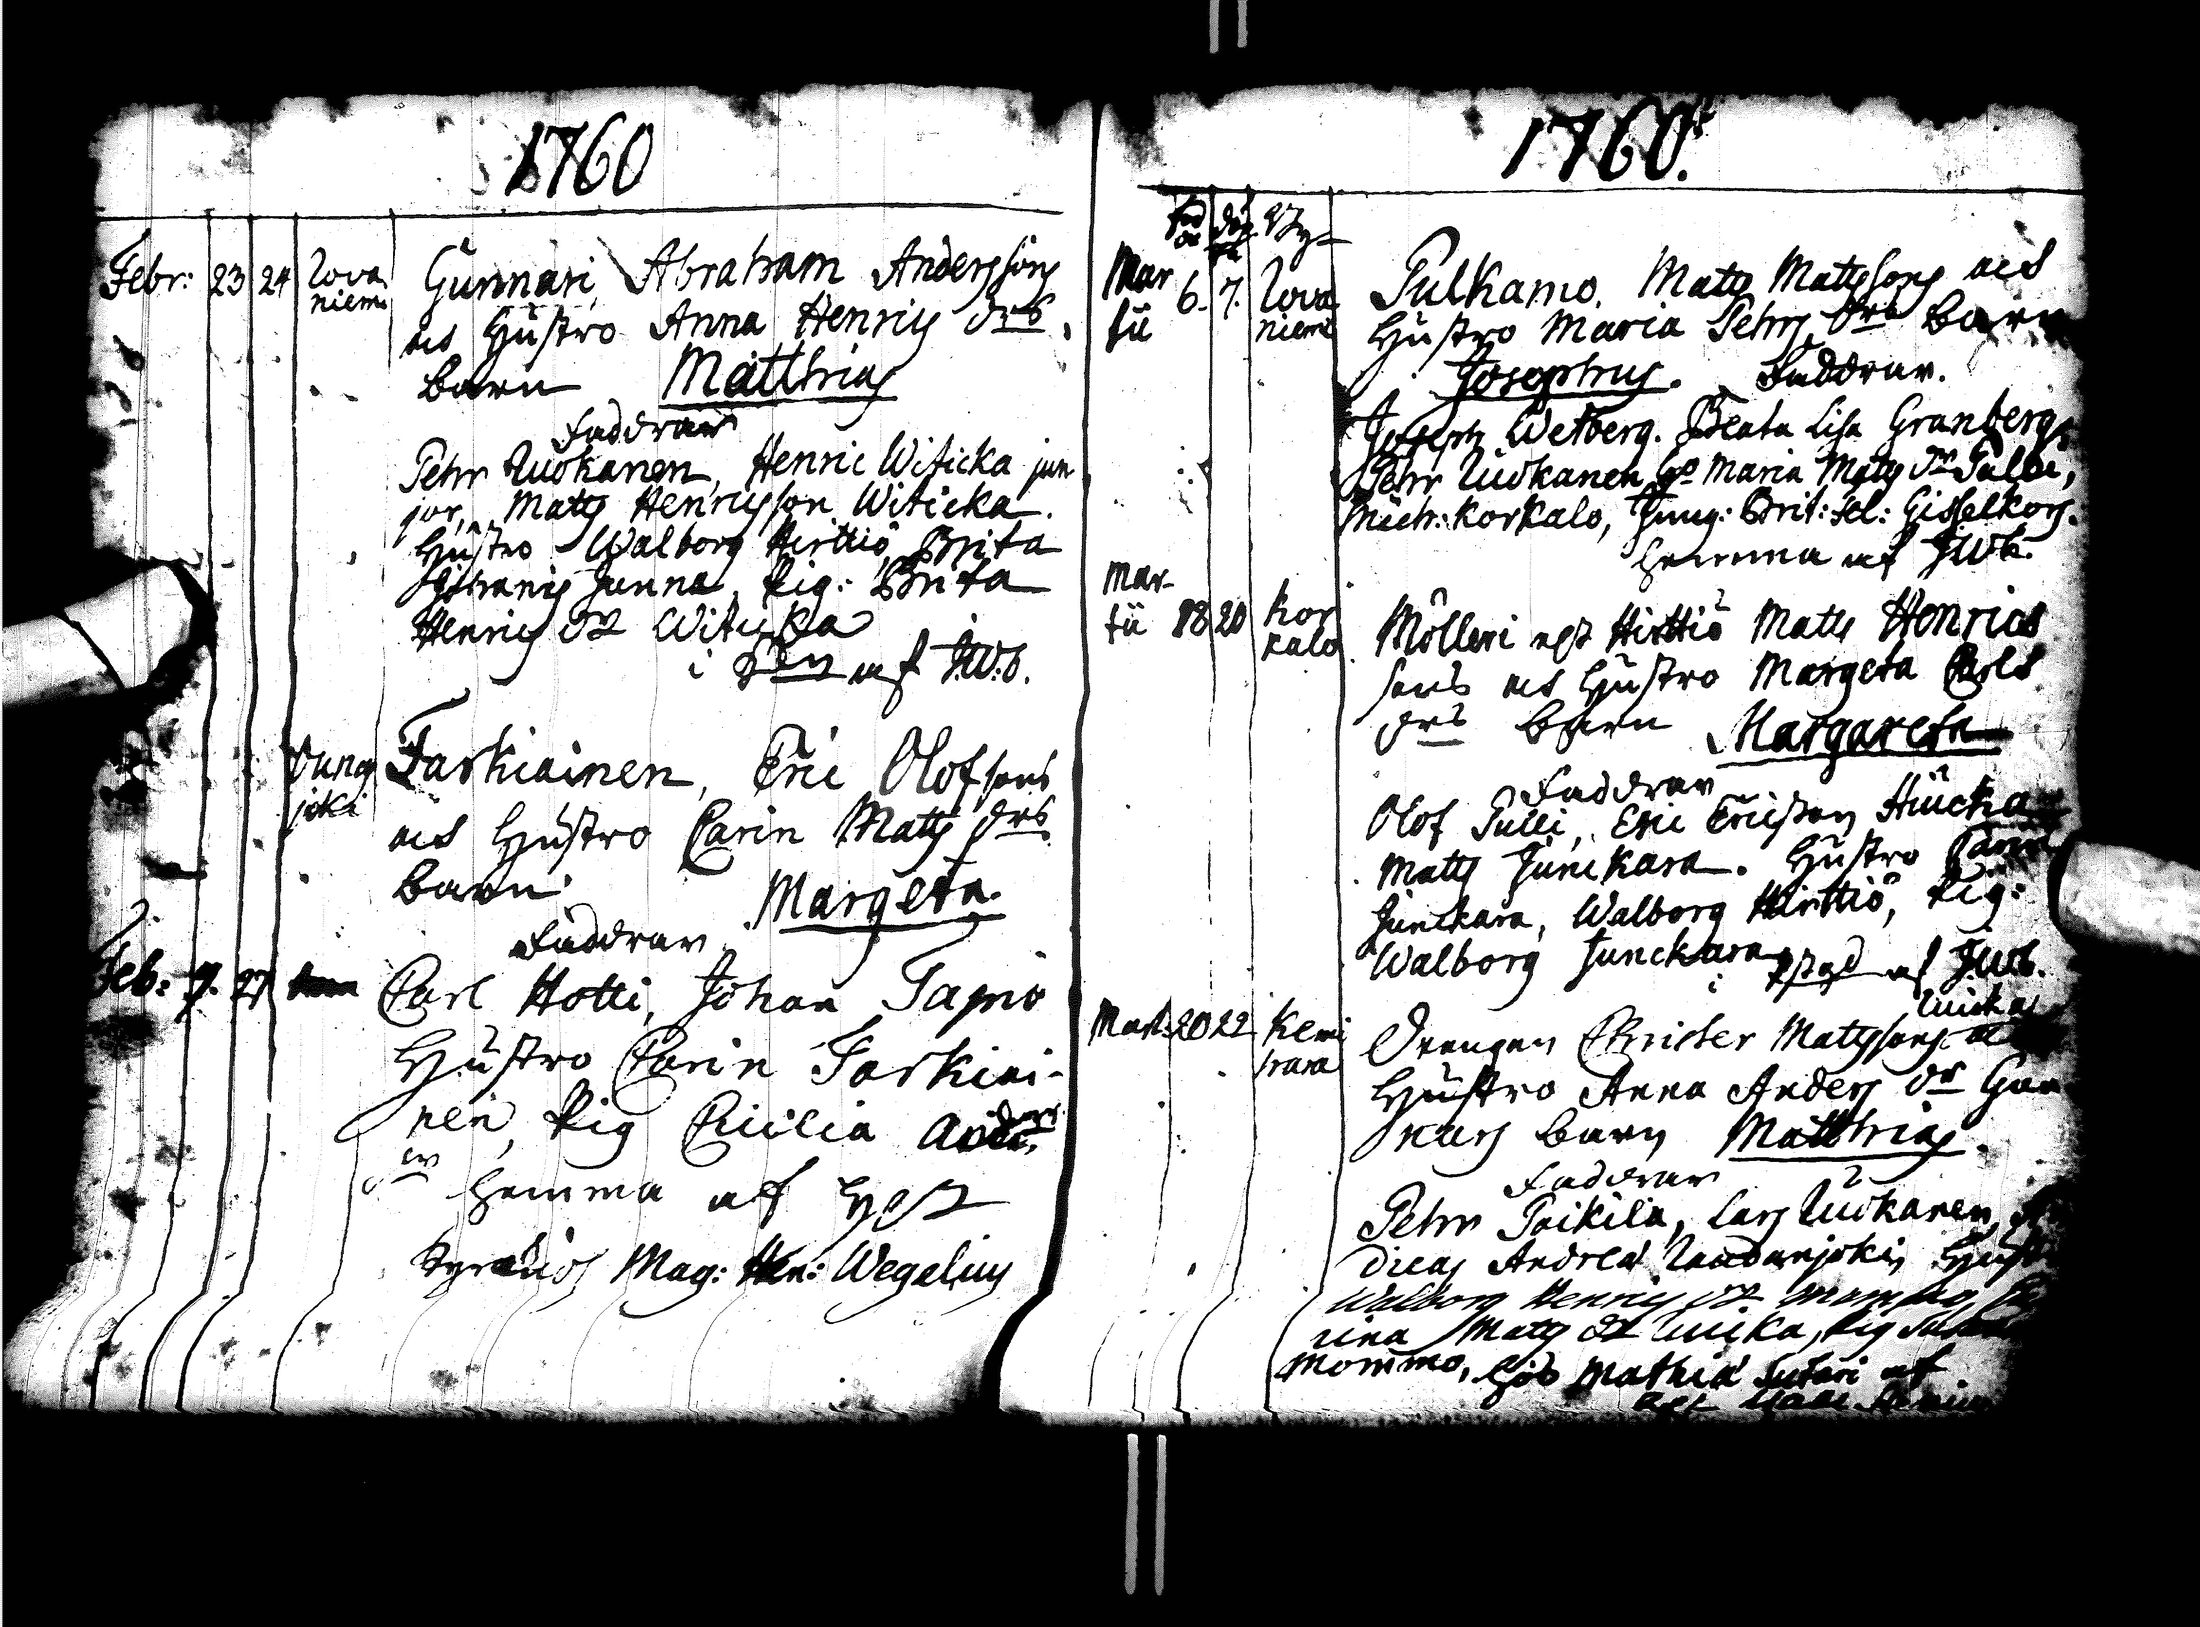 1760
Febr: 23 24 Rova
niemi
Gunnari, Abraham Anderssons
ocs Hustro Anna Henrics drs
barn Matthias
Faddrar
Pehr Ruokanen, Henric Witicka jun
jor, Matts Henricsson Witicka.
Hustro Walborg Hirttiö, Brita
Junna, Pig: Brita
Henrics dr Witicka
i af J.W.b.
Oung
joki
Tarkiainen, Eric Olofsons
ocs Hustro Carin Matts drs
barn: Margeta.
Faddrar
Feb: 9. 27
Carl Hotti, Johan Tapio
Hustro Carin Tarkiai-
nen, Pig Cicilia
dr hemma af
Mag: Hen: Wegelius
1760.
Mar
tii 6. 7. Rova
niemi
Pulkamo. Matts Mattssons ocs
Hustro Maria Pehrs drs barn
Josephus. Faddrar.
Joseph Wetberg. Beata Lisa Granberg,
Pehr Ruokanen, Ho Maria Matts dr
Mich: Korkalo, Jung: Brit: Hel: Gisselkors.
hemma af JWb.
Mar-
tii 18 20 Kor
kalo
Mölleri Hirttiö Matts Henrics
sons ocs Hustro Margeta Carls
drs barn Margareta
Faddrar
Olof Pulli, Eric Ericson
Matts Junckara. Hustro Carin
Junckara, Walborg Hirttiö, Pig:
Walborg Junckara
i af JWb.
Mart: 20 22 Kemi
hara
Luicka
Drengen Christer Mattssons
Hustro Anna Anders dr Gun
nars barn Matthias.
Faddrar
Pehr Poikila, Lars Ruokanen,
Andreæ Hustro
Walborg Henrics dr Mommo,
rina Matts dr Luicka, Pig
Mommo, hos Mathia Sutari af